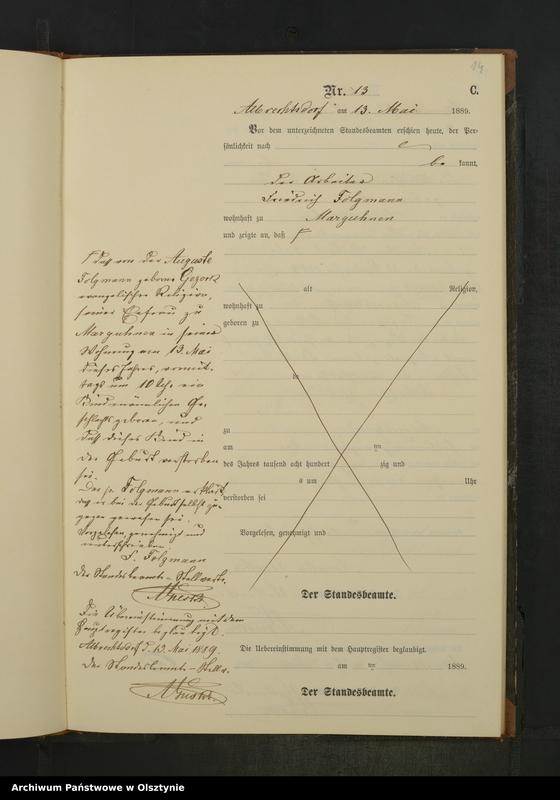 14
Nr. 13
C.
Albrechtsdorf am 13. Mai 1889.
Vor dem unterzeichneten Standesbeamten erschien heute, der Per-
sönlichkeit nach
be kannt,
der Arbeiter
Friedrich Folgmann
wohnhaft zu Marguhnen
und zeigte an, daß
daß von der Auguste
Folgmann geborene
evangelischer Religion,
seiner Ehefrau zu
Marguhnen in seiner
Wohnung am 13. Mai
dieses Jahres, vormit-
tags um 10 Uhr ein
Kind männlichen Ge-
schlechts geboren, und
daß dieses Kind in
der Geburt verstorben
sei.
Der p. Folgmann erklärt,
daß er bei der Geburt selbst zu-
gegen gewesen sei.
Vorgelesen, genehmigt und
unterschrieben.
F. Folgmann
Der Standesbeamte - Stellvertr.
Die Übereinstimmung mit dem
Hauptregister beglaubigt.
Albrechtsdorf d. 13. Mai 1889.
Der Standesbeamte - Stellv.
alt Religion,
wohnhaft zu
geboren zu
zu
am ten
des Jahres tausend acht hundert zig und
um Uhr
verstorben sei
Vorgelesen, genehmigt und
Der Standesbeamte.
Die Uebereinstimmung mit dem Hauptregister beglaubigt.
am ten 1889.
Der Standesbeamte.
Archiwum Państwowe w Olsztynie